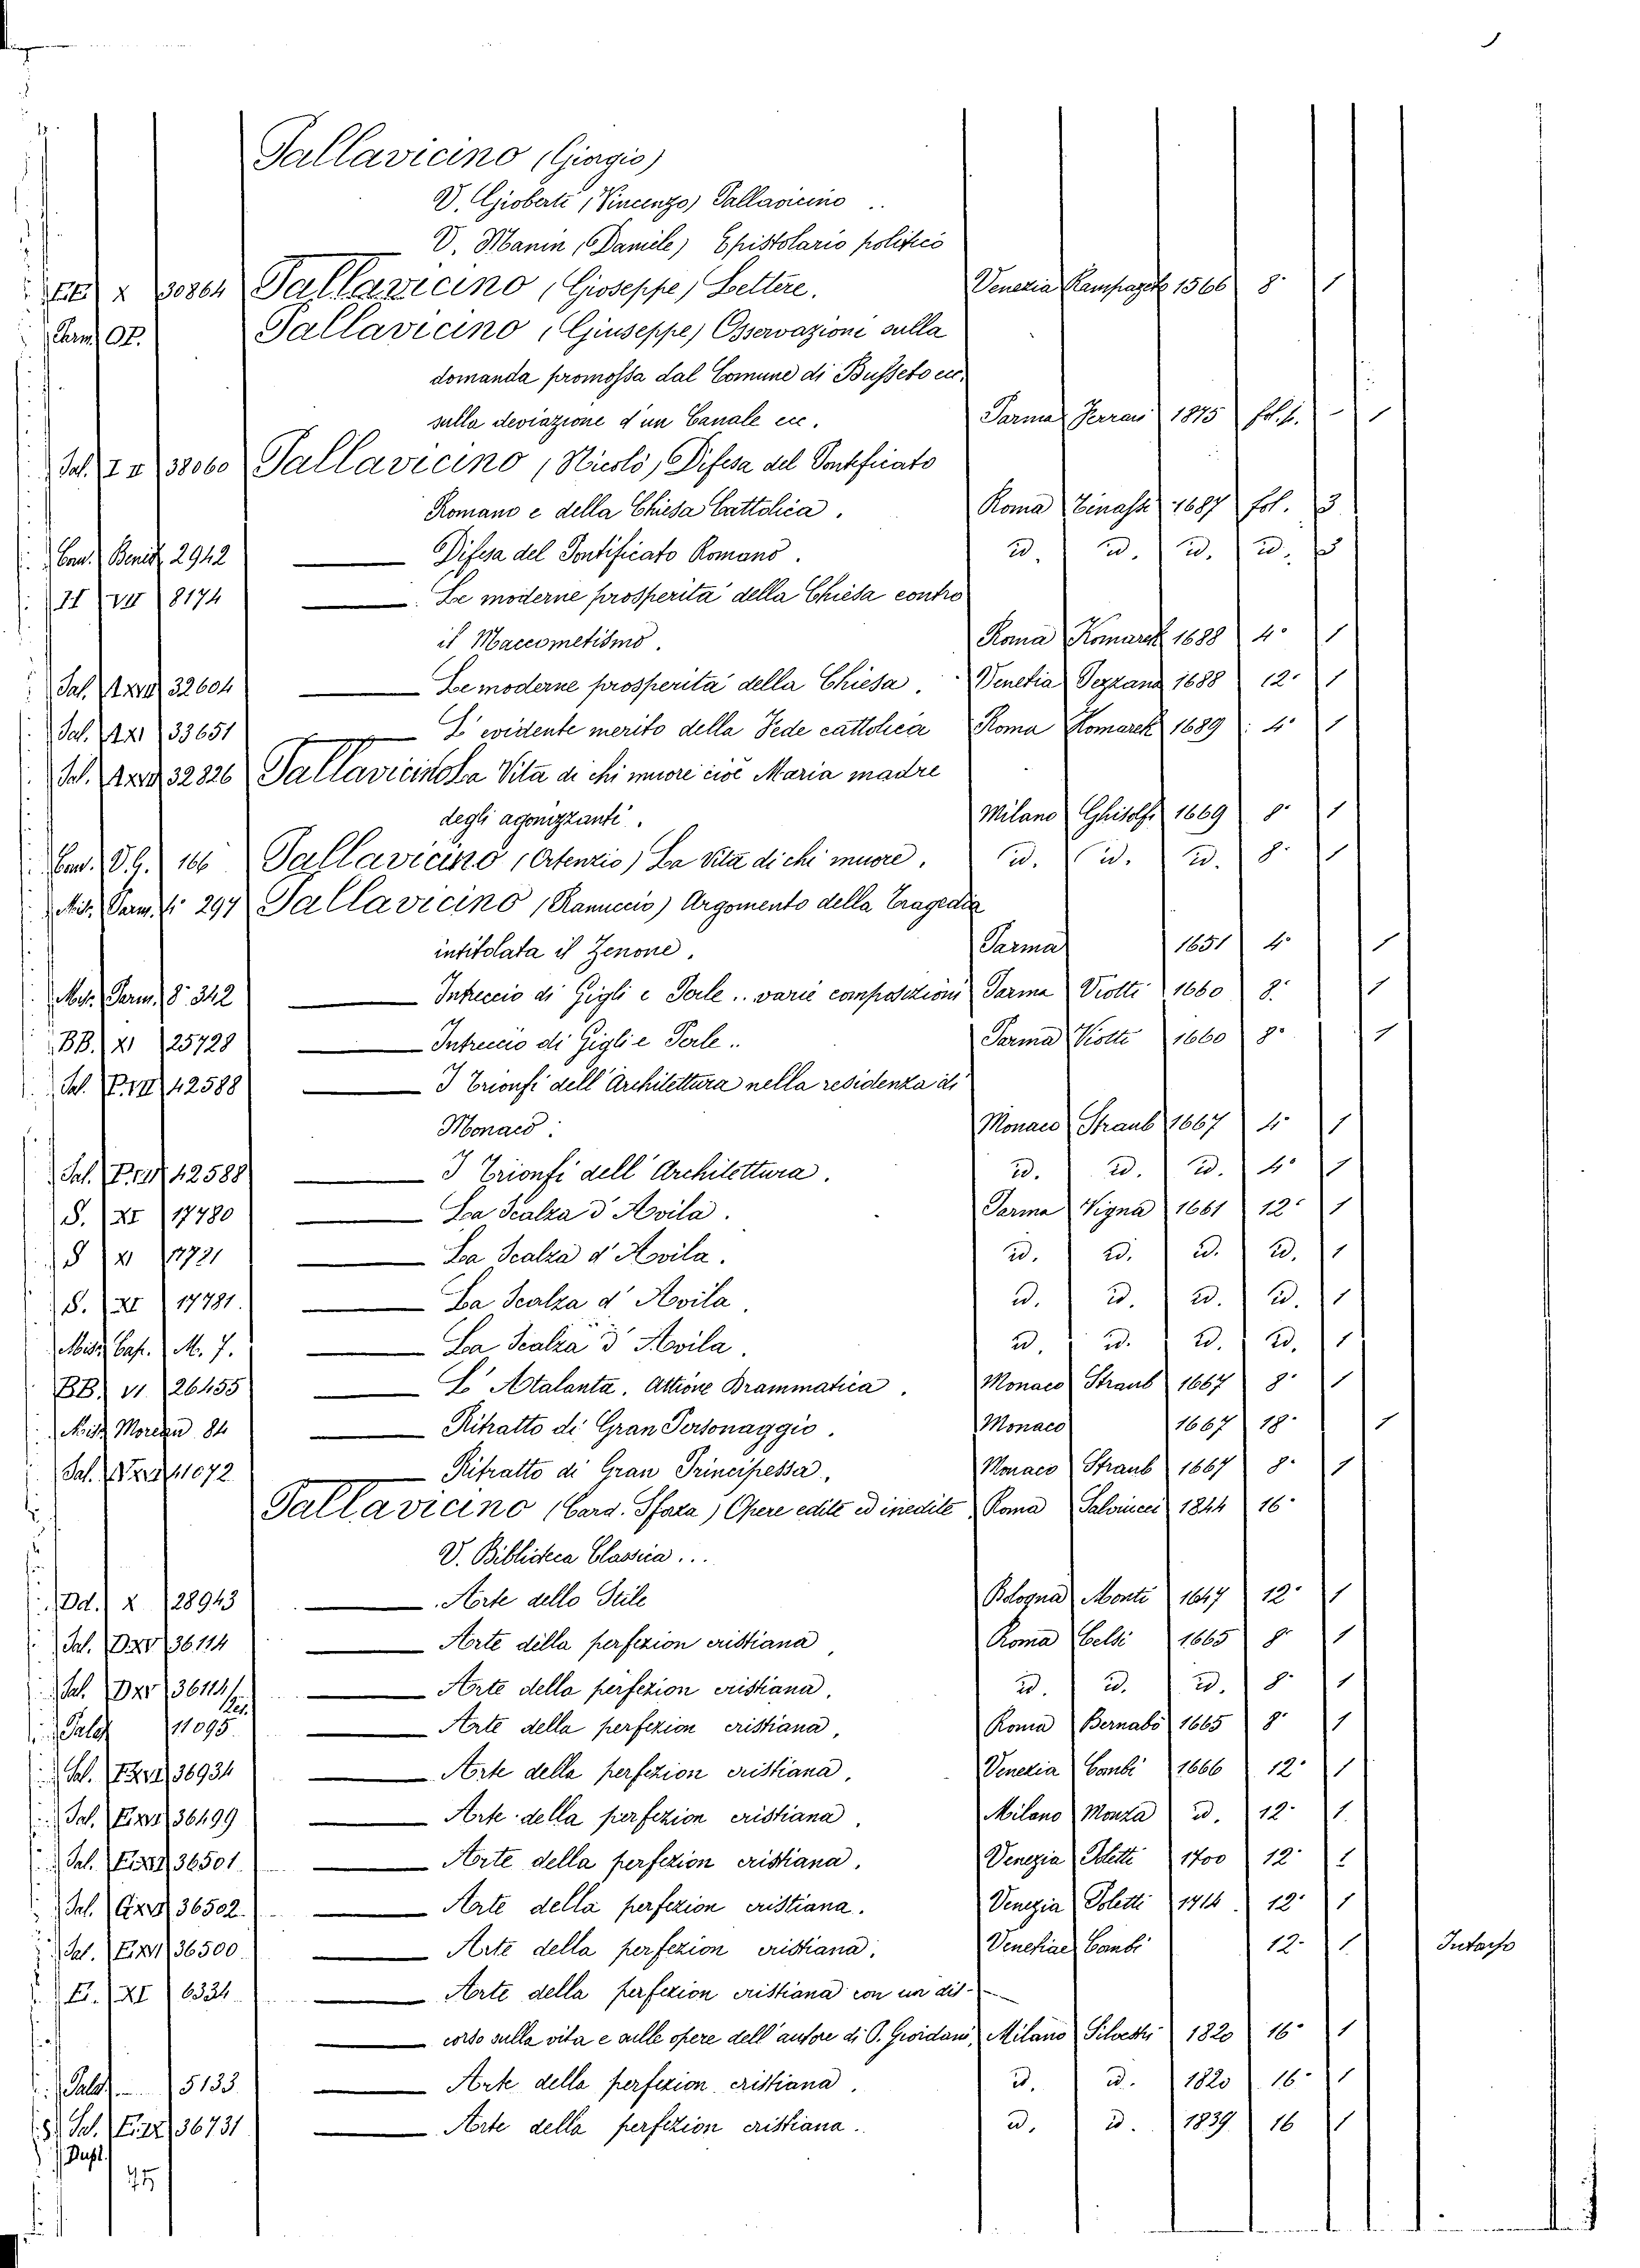 Pallavicino (Giorgio)
V. Gioberti (Vincenzo) Pallavicino ..
V. Manin (Daniele) Epistolario politico
x 30864 Pallavicino (Gioseppe) Lettere. Venezia Rampazett 1566 8° 1
Parm. OP. Pallavicino (Giuseppe) Osservazioni sulla
domanda promossa dal Comune di Busseto ecc.
sulla deviazione d'un Canale ecc. Parma Ferrari 1875 fol. p. 1
Pal. 38060 Pallavicino (Nicolò) Difesa del Pontificato
Romano e della Chiesa Cattolica. Roma 1687 fol. 3
Benef. 2942 Difesa del Pontificato Romano. id. id. id. id. 3
II VII 8174 Le moderne prosperità della Chiesa contro
il Maccometismo. Roma Komarek 1688 4° 1
Pal. 32604 Le moderne prosperità della Chiesa. Venetia Pezzana 1688 12° 1
Pal. 33651 L'evidente merito della Fede cattolica Roma Komarek 1689 4° 1
Pal. 32826 Pallavicino La Vita di chi muore cioè Maria madre
degli agonizzanti. Milano Ghisolfi 1669 8° 1
V.G. 166 Pallavicino (Ortenzio) La Vita di chi muore. id. id. id. 8° 1
Mis. Parm. 297 Pallavicino (Ranuccio) Argomento della Tragedia
intitolata il Zenone. Parma 1651 4° 1
Mis. Parm. 8° 342 Intreccio di Gigli e Perle .. varie composizioni Parma Viotti 1660 8° 1
BB. XI 25728 Intreccio di Gigli e Perle .. Parma Viotti 1660 8° 1
Pal. 42588 I Trionfi dell'Architettura nella residenza di
Monaco. Monaco Straub 1667 4° 1
Pal. 42588 I Trionfi dell'Architettura. id. id. id. 4° 1
S. XI 17780 La Scalza d'Avila. Parma Vigna 1661 12° 1
S XI 17721 La Scalza d'Avila. id. id. id. id. 1
S. XI 17781. La Scalza d'Avila. id. id. id. id. 1
Misc. Cap. M. 7. La Scalza d'Avila. id. id. id. id. 1
BB. VI. 26455 L'Atalanta. Attione Drammatica. Monaco Straub 1667 8° 1
Misc. Moreau 84 Ritratto di Gran Personaggio. Monaco 1667 18° 1
Pal. 11072 Ritratto di Gran Principessa. Monaco Straub 1667 8° 1
Pallavicino (Card. Sforza) Opere edite ed inedite Roma Salviucci 1844 16°
V. Biblioteca Classica ...
Dd. X 28943 Arte dello Stile Bologna Monti 1647 12° 1
Pal. DXV 36114 Arte della perfezion cristiana, Roma Celsi 1665 8° 1
Pal. DXV 36114/bis. Arte della perfezion cristiana. id. id. id. 8° 1
Palat 11095 Arte della perfezion cristiana, Roma Bernabò 1665 8° 1
Pal. 36934 Arte della perfezion cristiana. Venezia Combi 1666 12° 1
Pal. 36499 Arte della perfezion cristiana. Milano Monza id. 12° 1
Pal. 36501 Arte della perfezion cristiana. Venezia Poletti 1700 12° 1
Pal. 36502. Arte della perfezion cristiana. Venezia Poletti 1714 12° 1
Pal. 36500. Arte della perfezion cristiana. Venetiae Combi 12° 1 Intarso
E. XI 6334 Arte della perfezion cristiana con un dis-
corso sulla vita e sulle opere dell'autore di P. Giordani. Milano Silvestri 1820 16° 1
Palat 5133 Arte della perfezion cristiana. id. id. 1820 16° 1
Pal. 36731 Arte della perfezion cristiana. id. id. 1839 16 1
Dupl.
45